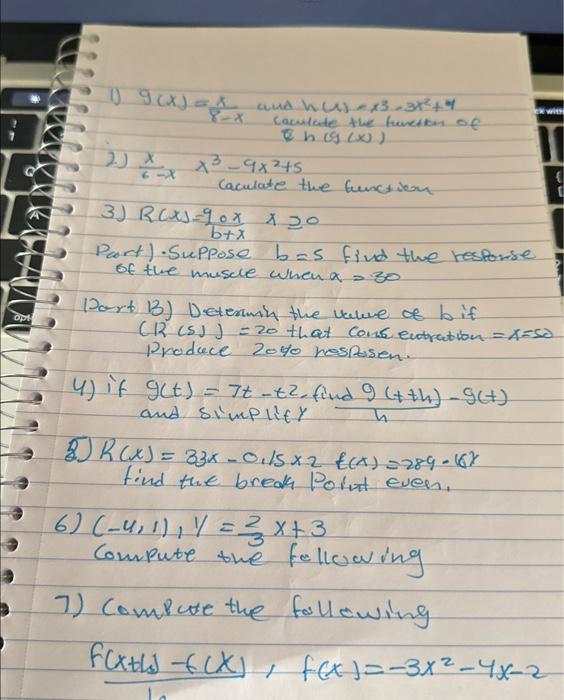 1) g(x) = x/8-x and h(x) = x3 - 3x2 + 4
Caculate the function of
h(g(x))
2) x/6-x x3 - 9x2 + 5
Caculate the function
3) R(x) = 90x/b+x x ≥ 0
Part). Suppose b = 5 find the response
of the muscle when x = 30
Part B) Determin the value of b if
(R(5)) = 20 that = x = 50
Produce 20%
4) if g(t) = 7t - t2. find g(t+h) - g(t)/h
and simplify
R(x) = 33x - 0.15x2
find the break Point even.
6) (-4, 1), Y = 2/3 x + 3
Compute the following
7) Compute the following
f(x+h) - f(x)/h, f(x) = -3x2 - 4x - 2